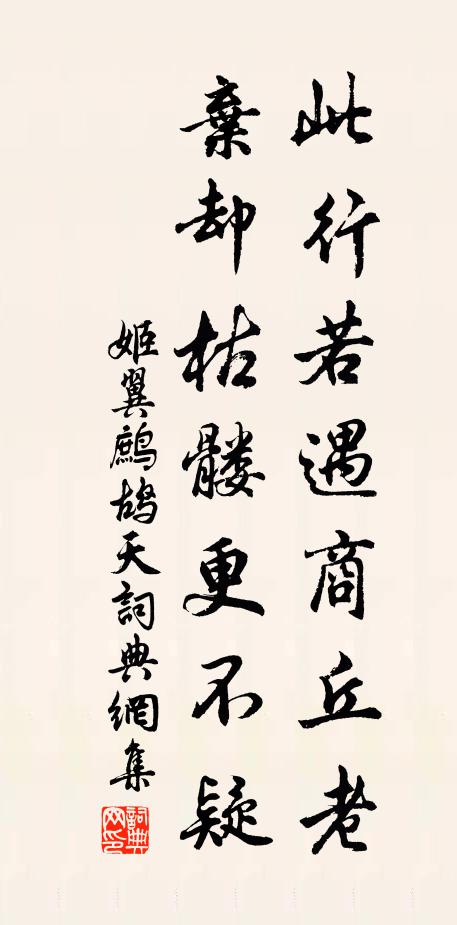 此行若遇商丘老
棄却枯髏更不疑
姬翼鷓鴣天詞典網集
詞典網印